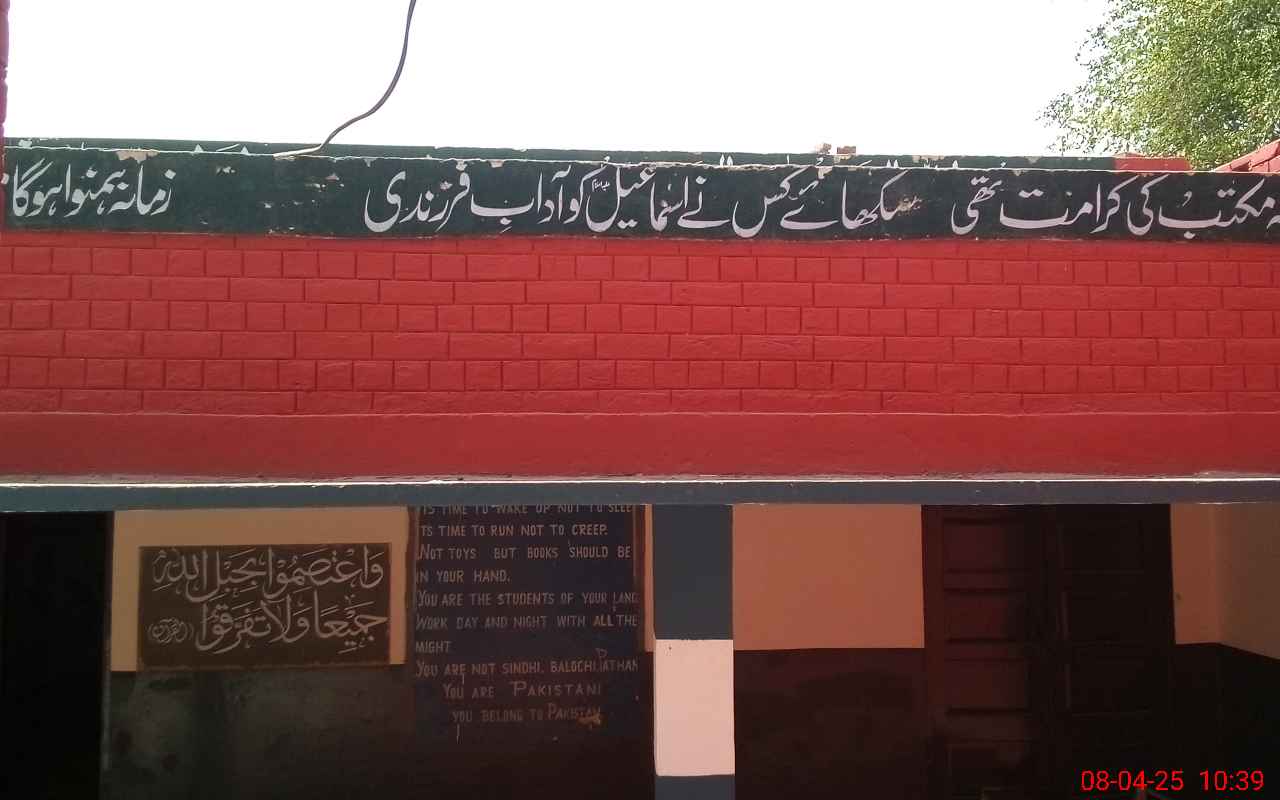 مکتب کی کرامت تھی سکھائے کس نے اسماعیلؑ کو آدابِ فرزندی زمانہ ہمنوا ہوگا
TS TIME TO WAKE UP NOT TO SLEE
TS TIME TO RUN NOT TO CREEP.
NOT TOYS BUT BOOKS SHOULD BE
IN YOUR HAND.
YOU ARE THE STUDENTS OF YOUR LAND
WORK DAY AND NIGHT WITH ALL THE
MIGHT
YOU ARE NOT SINDHI. BALOCHI PATHAN
YOU ARE PAKISTANI
YOU BELONG TO PAKISTAN
وَاعْتَصِمُوْا بِحَبْلِ اللّٰهِ
جَمِیْعًا وَلَا تَفَرَّقُوْا (القرآن)
08-04-25 10:39